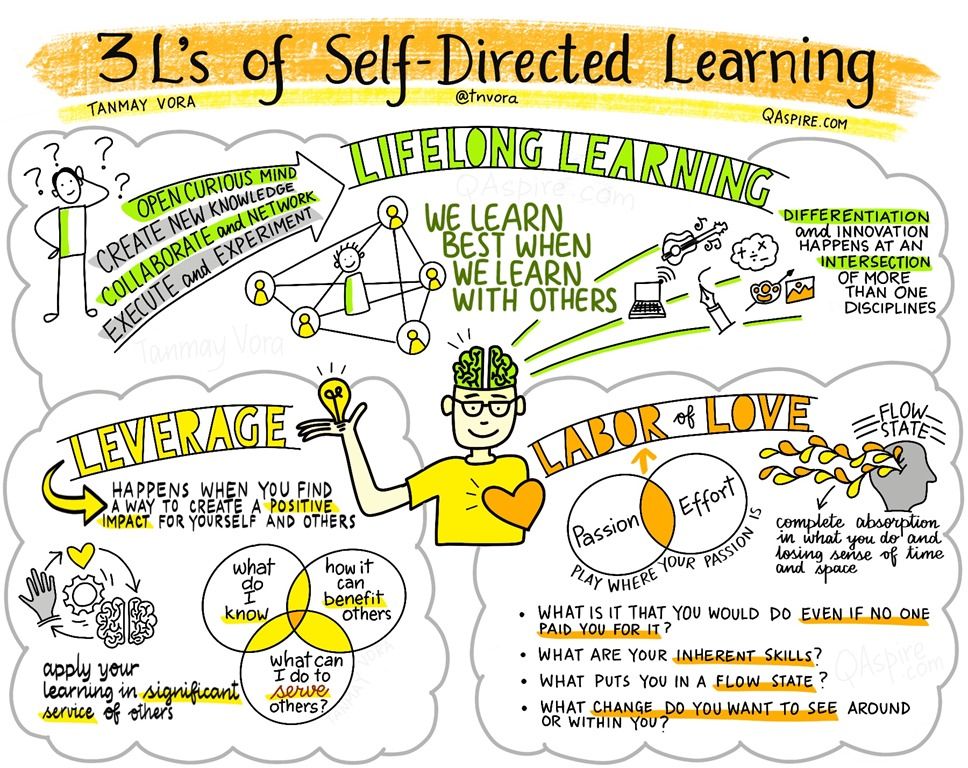 3 L's of Self-Directed Learning
TANMAY VORA
@tnvora
QASPIRE.COM
LIFELONG LEARNING
? ? ? ?
OPEN CURIOUS MIND
CREATE NEW KNOWLEDGE
COLLABORATE and NETWORK
EXECUTE and EXPERIMENT
QAspire.com
Tanmay Vora
WE LEARN
BEST WHEN
WE LEARN
WITH OTHERS
DIFFERENTIATION
and INNOVATION
HAPPENS AT AN
INTERSECTION
OF MORE
THAN ONE
DISCIPLINES
LEVERAGE
HAPPENS WHEN YOU FIND
A WAY TO CREATE A POSITIVE
IMPACT FOR YOURSELF AND OTHERS
what
do
I
know
how it
can
benefit
others
what can
I do to
serve
others?
TANMAY VORA
apply your
learning in significant
service of others
LABOR of LOVE
Passion
Effort
PLAY WHERE YOUR PASSION IS
FLOW
STATE
complete absorption
in what you do and
losing sense of time
and space
• WHAT IS IT THAT YOU WOULD DO EVEN IF NO ONE
PAID YOU FOR IT?
• WHAT ARE YOUR INHERENT SKILLS?
• WHAT PUTS YOU IN A FLOW STATE?
• WHAT CHANGE DO YOU WANT TO SEE AROUND
OR WITHIN YOU?
QAspire
.com